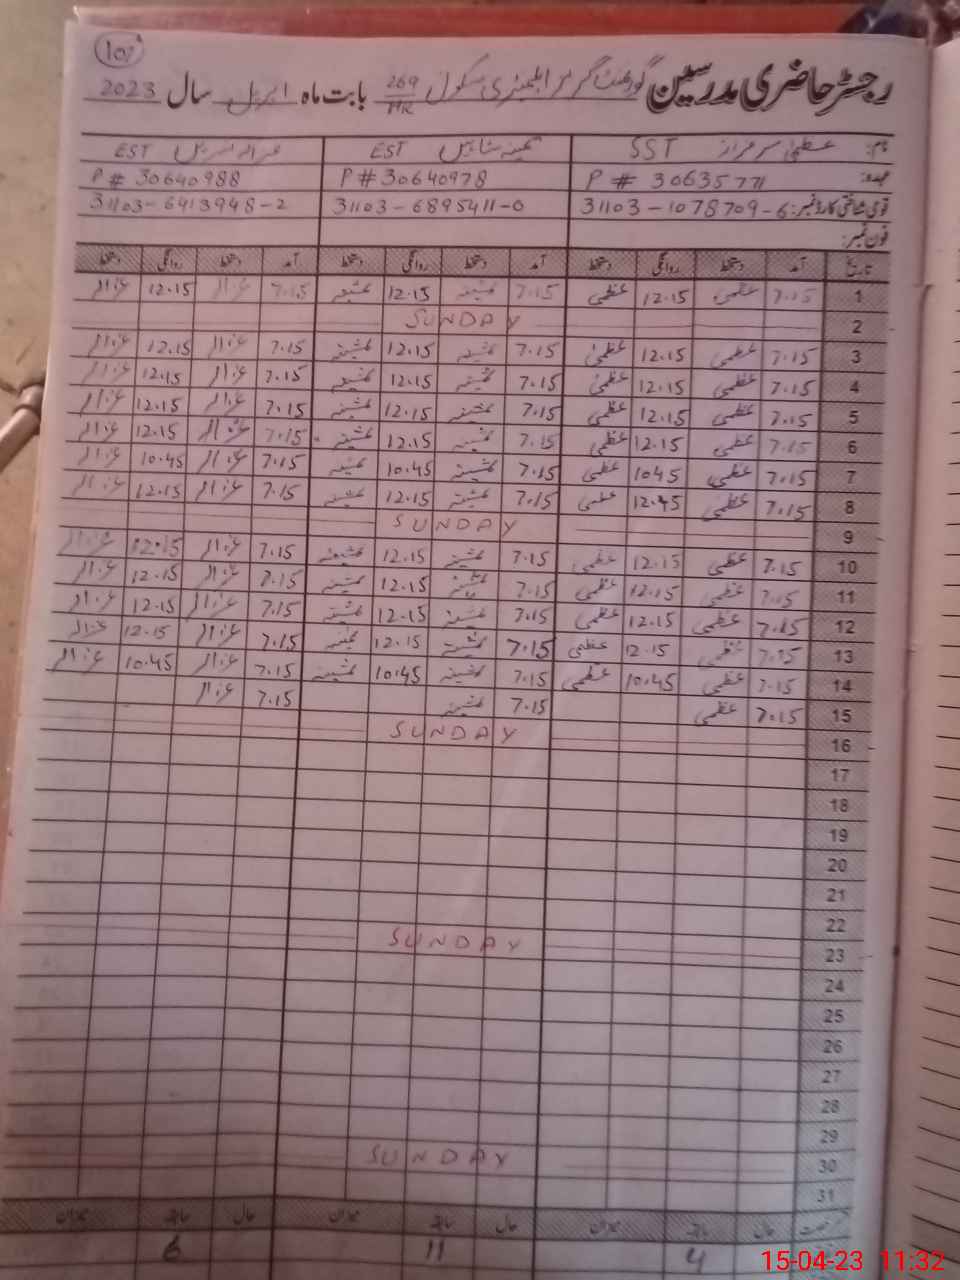 107
رجسٹر حاضری مدرسین گورنمنٹ گرلز ایلیمنٹری سکول 269/MR بابت ماہ اپریل سال 2023
نام: عظمیٰ سرفراز SST ثمینہ شاہین EST غزالہ EST
عہدہ: P # 30635771 P # 30640978 P # 30640988
قومی شناختی کارڈ نمبر: 31103-1078709-6 31103-6895411-0 31103-6413948-2
فون نمبر:
تاریخ آمد دستخط روانگی دستخط آمد دستخط روانگی دستخط آمد دستخط روانگی دستخط
1 7.15 عظمی 12.15 عظمی 7.15 ثمینہ 12.15 ثمینہ 7.15 غزالہ 12.15 غزالہ
2 SUNDAY
3 7.15 عظمی 12.15 عظمی 7.15 ثمینہ 12.15 ثمینہ 7.15 غزالہ 12.15 غزالہ
4 7.15 عظمی 12.15 عظمی 7.15 ثمینہ 12.15 ثمینہ 7.15 غزالہ 12.15 غزالہ
5 7.15 عظمی 12.15 عظمی 7.15 ثمینہ 12.15 ثمینہ 7.15 غزالہ 12.15 غزالہ
6 7.15 عظمی 12.15 عظمی 7.15 ثمینہ 12.15 ثمینہ 7.15 غزالہ 12.15 غزالہ
7 7.15 عظمی 10.45 عظمی 7.15 ثمینہ 10.45 ثمینہ 7.15 غزالہ 10.45 غزالہ
8 7.15 عظمی 12.45 عظمی 7.15 ثمینہ 12.15 ثمینہ 7.15 غزالہ 12.15 غزالہ
9 SUNDAY
10 7.15 عظمی 12.15 عظمی 7.15 ثمینہ 12.15 ثمینہ 7.15 غزالہ 12.15 غزالہ
11 7.15 عظمی 12.15 عظمی 7.15 ثمینہ 12.15 ثمینہ 7.15 غزالہ 12.15 غزالہ
12 7.15 عظمی 12.15 عظمی 7.15 ثمینہ 12.15 ثمینہ 7.15 غزالہ 12.15 غزالہ
13 7.15 عظمی 12.15 عظمی 7.15 ثمینہ 12.15 ثمینہ 7.15 غزالہ 12.15 غزالہ
14 7.15 عظمی 10.45 عظمی 7.15 ثمینہ 10.45 ثمینہ 7.15 غزالہ 10.45 غزالہ
15 7.15 عظمی 7.15 ثمینہ 7.15 غزالہ
16 SUNDAY
17
18
19
20
21
22
23 SUNDAY
24
25
26
27
28
29
30 SUNDAY
31
رخصت حال سابقہ میزان حال سابقہ میزان حال سابقہ میزان
4 11 6
15-04-23 11:32